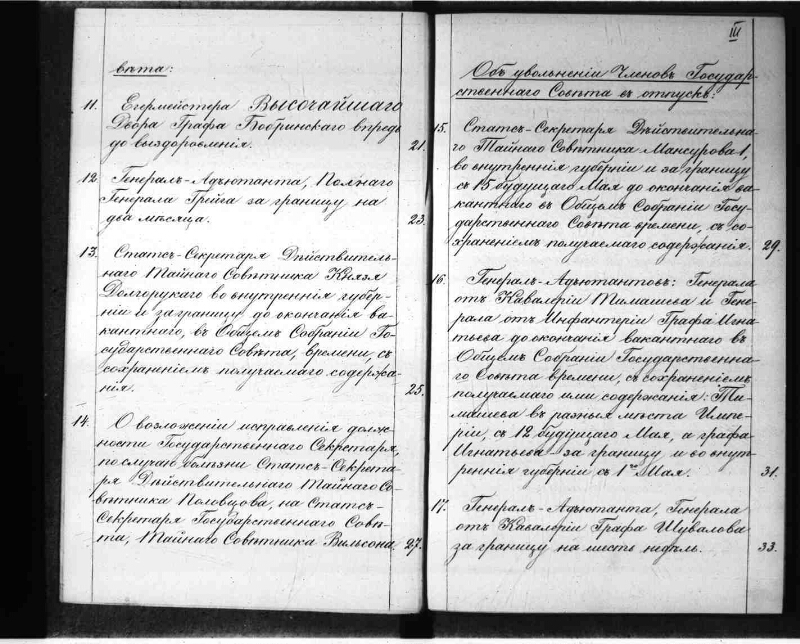 вѣта:
11. Егермейстера Высочайшаго
Двора Графа Бобринскаго впредь
до выздоровленія. 21.
12. Генералъ-Адъютанта, Полнаго
Генерала Грейга за границу на
два мѣсяца. 23.
13. Статсъ-Секретаря Дѣйствитель-
наго Тайнаго Совѣтника Князя
Долгорукаго во внутреннія губер-
ніи и за границу до окончанія ва-
кантнаго, въ Общемъ Собраніи Го-
сударственнаго Совѣта, времени, съ
сохраненіемъ получаемаго содержа-
нія. 25.
14. О возложеніи исправленія долж-
ности Государственнаго Секретаря,
по случаю болѣзни Статсъ-Секрета-
ря Дѣйствительнаго Тайнаго Со-
вѣтника Половцова, на Статсъ-
Секретаря Государственнаго Совѣ-
та, Тайнаго Совѣтника Вильсона. 27.
III
Объ увольненіи Членовъ Государ-
ственнаго Совѣта въ отпускъ:
15. Статсъ-Секретаря Дѣйствительна-
го Тайнаго Совѣтника Мансурова 1,
во внутреннія губерніи и за границу
съ 15 будущаго Мая до окончанія ва-
кантнаго въ Общемъ Собраніи Госу-
дарственнаго Совѣта времени, съ со-
храненіемъ получаемаго содержанія. 29.
16. Генералъ-Адъютантовъ: Генерала
отъ Кавалеріи Тимашева и Гене-
рала отъ Инфантеріи Графа Игна-
тьева до окончанія вакантнаго въ
Общемъ Собраніи Государственна-
го Совѣта времени, съ сохраненіемъ
получаемаго ими содержанія: Ти-
машева въ разныя мѣста Импе-
ріи, съ 12 будущаго Мая, а графа
Игнатьева за границу и во внут-
реннія губерніи съ 1го Мая. 31.
17. Генералъ-Адъютанта, Генерала
отъ Кавалеріи Графа Шувалова
за границу на шесть недѣль. 33.